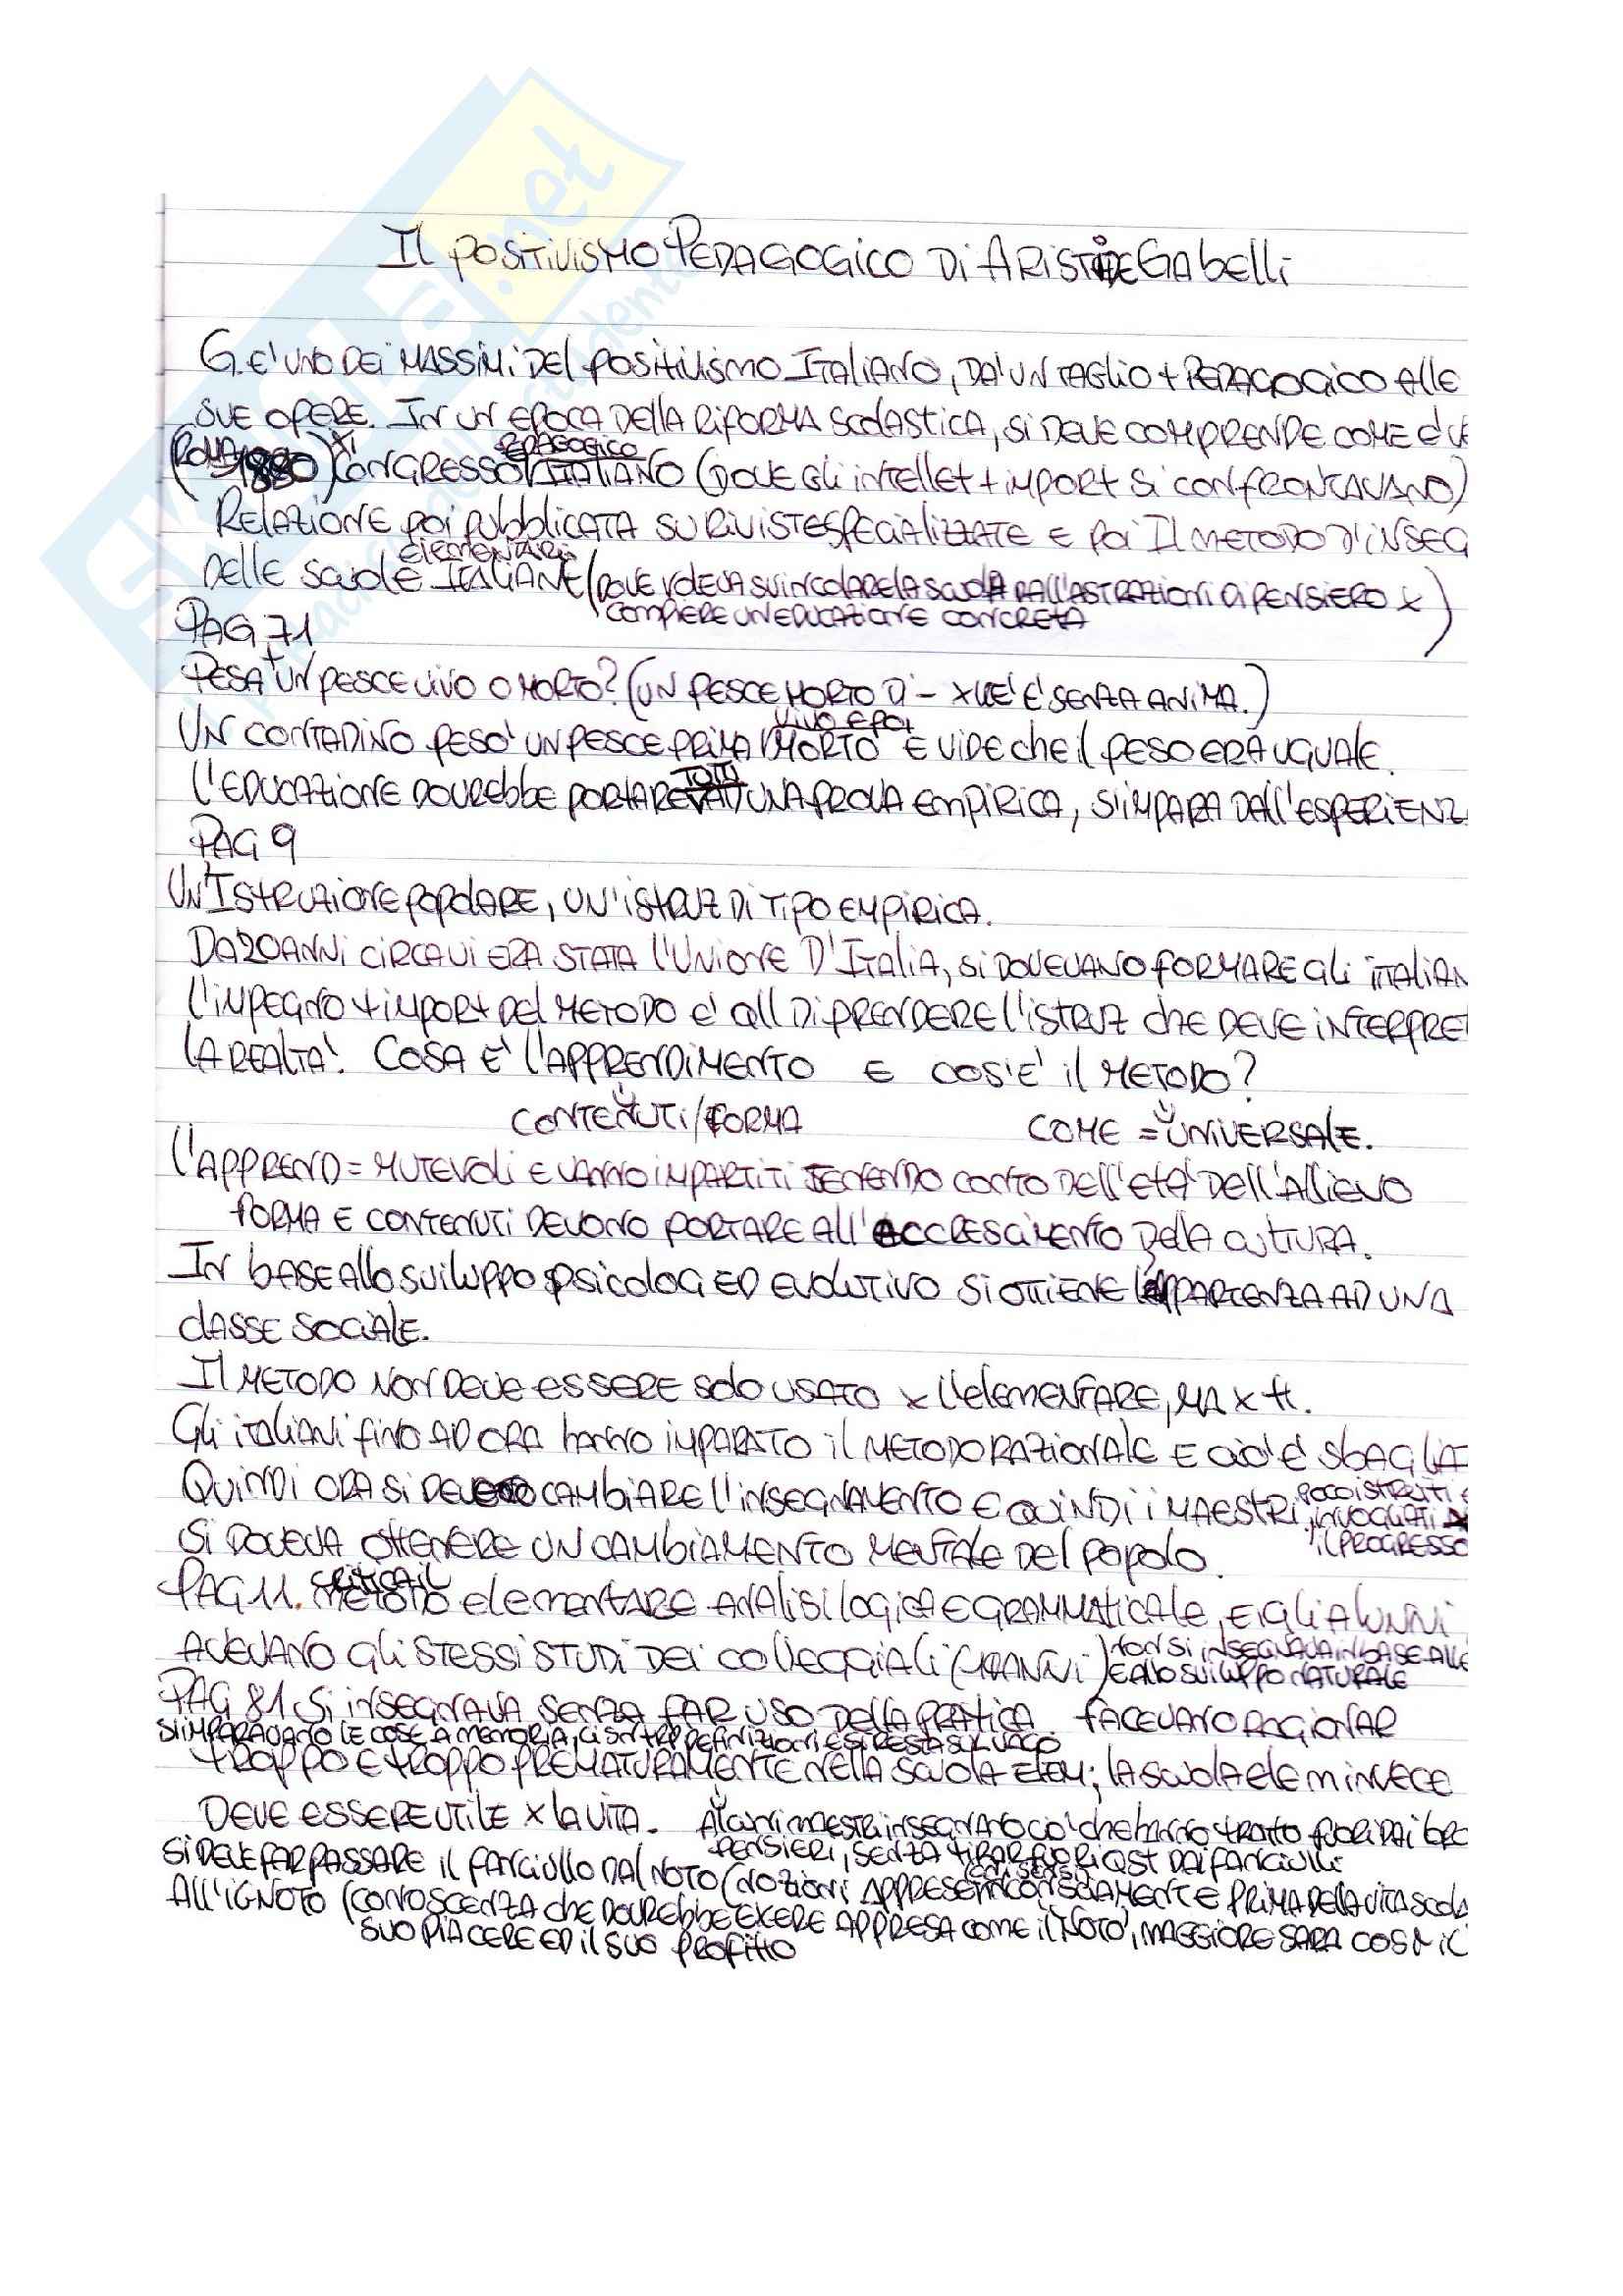 Il POSITIVISMO PEDAGOGICO Di ARISTIDE GAbelli
G. E' UNO DEI MASSIMI DEL POSITIVISMO ITALIANO, DA' UN TAGLIO + PEDAGOGICO Alle
SUE OPERE. IN UN EPOCA DELLA RIFORMA SCOLASTICA, SI DEVE COMPRENDE COME E'
(ROMA 1880) XI CONGRESSO PEDAGOGICO ITALIANO (DOVE Gli iNTELLET + iMPORT Si CONFRONTAVANO)
RELAZIONE POI PUbblicATA SU RIVISTE SPECIALIZZATE E POI Il METODO D'INSEG
DELLE SCUOLE ELEMENTARI ITALIANE (DOVE VOLEVA SVINCOLARE LA SCUOLA DALL'ASTRAZIONI DI PENSIERO X
COMPIERE UN EDUCAZIONE CONCRETA)
PAG 71
PESA + UN PESCE VIVO O MORTO? (UN PESCE MORTO DI - XKE' E' SENZA ANIMA.)
UN CONTADINO PESO' UN PESCE PRIMA VIVO E POI MORTO E VIDE che il PESO ERA UGUALE.
L'EDUCAZIONE DOVREbbe PORTARE TUTTI AD UNA PROVA EMPIRICA, S'IMPARA DALL'ESPERIENZ
PAG 9
UN'ISTRUZIONE POPOLARE, UN'ISTRUZ DI TIPO EMPIRICA.
DA 20 ANNI CIRCA VI ERA STATA l'UNIONE D'ITALIA, SI DOVEVANO FORMARE Gli ITALIAN
L'IMPEGNO + IMPORT DEL METODO E' DI PRENDERE l'ISTRUZ che DEVE INTERPRET
LA REALTA'. COSA E' l'APPRENDIMENTO E COS'E' il METODO?
CONTENUTI/FORMA COME = UNIVERSALE.
L'APPREND = MUTEVOLI E VANNO IMPARTITI TENENDO CONTO DELL'ETA' DELL'ALLIEVO
FORMA E CONTENUTI DEVONO PORTARE All'ACCRESCIMENTO DELLA CULTURA.
IN BASE Allo SVILUPPO PSICOLOG ED EVOLUTIVO SI OTTIENE l'APPARTENZA AD UNA
CLASSE SOCIALE.
Il METODO NON DEVE ESSERE SOLO USATO X l'ELEMENTARE, MA X tt.
Gli ITALIANI FINO AD ORA hANNO IMPARATO il METODO RAZIONALE E CIO' E' SbAGLIAT
QUINDI ORA SI DEVE CAMbIARE l'INSEGNAMENTO E QUINDI i MAESTRI, POCO ISTRUITI E
INVOGLIATI X
il PROGRESSO
SI DOVEVA OTTENERE UN CAMbIAMENTO MENTALE DEL POPOLO.
PAG 11. CRITICA IL METODO ELEMENTARE ANALISI LOGICA E GRAMMATICALE, E Gli AlUNNI
AVEVANO GLI STESSI STUDI DEI COLLEGGIALI NON SI INSEGNAVA IN BASE ALLE
E Allo SVILUPPO NATURALE
PAG 81 SI INSEGNAVA SENZA FAR USO DELLA PRATICA. FACEVANO RAGIONAR
SI IMPARAVANO LE COSE A MEMORIA, CI SN TRP DEFINIZIONI E SI RESTA SUL VAGO
TROPPO E TROPPO PREMATURAMENTE NELLA SCUOLA ELEM; LA SCUOLA ELEM INVECE
DEVE ESSERE UTILE X LA VITA. Alcuni MAESTRI INSEGNANO CIO' che hANNO TRATTO FUORI DAI lORO
PENSIERI, SENZA TIRAR FUORI QST DAI FANCIULLI
SI DEVE FAR PASSARE il FANCIULLO DAL NOTO (NOZIONI APPRESE INCONSCIAMENTE E PRIMA DELLA VITA SCOLA
(CON I SENSI)
All'IGNOTO (CONOSCENZA che DOVREbbE EXERE APPRESA COME il 'NOTO', MAGGIORE SARA COSI' il
SUO PIACERE ED il SUO PROFITTO